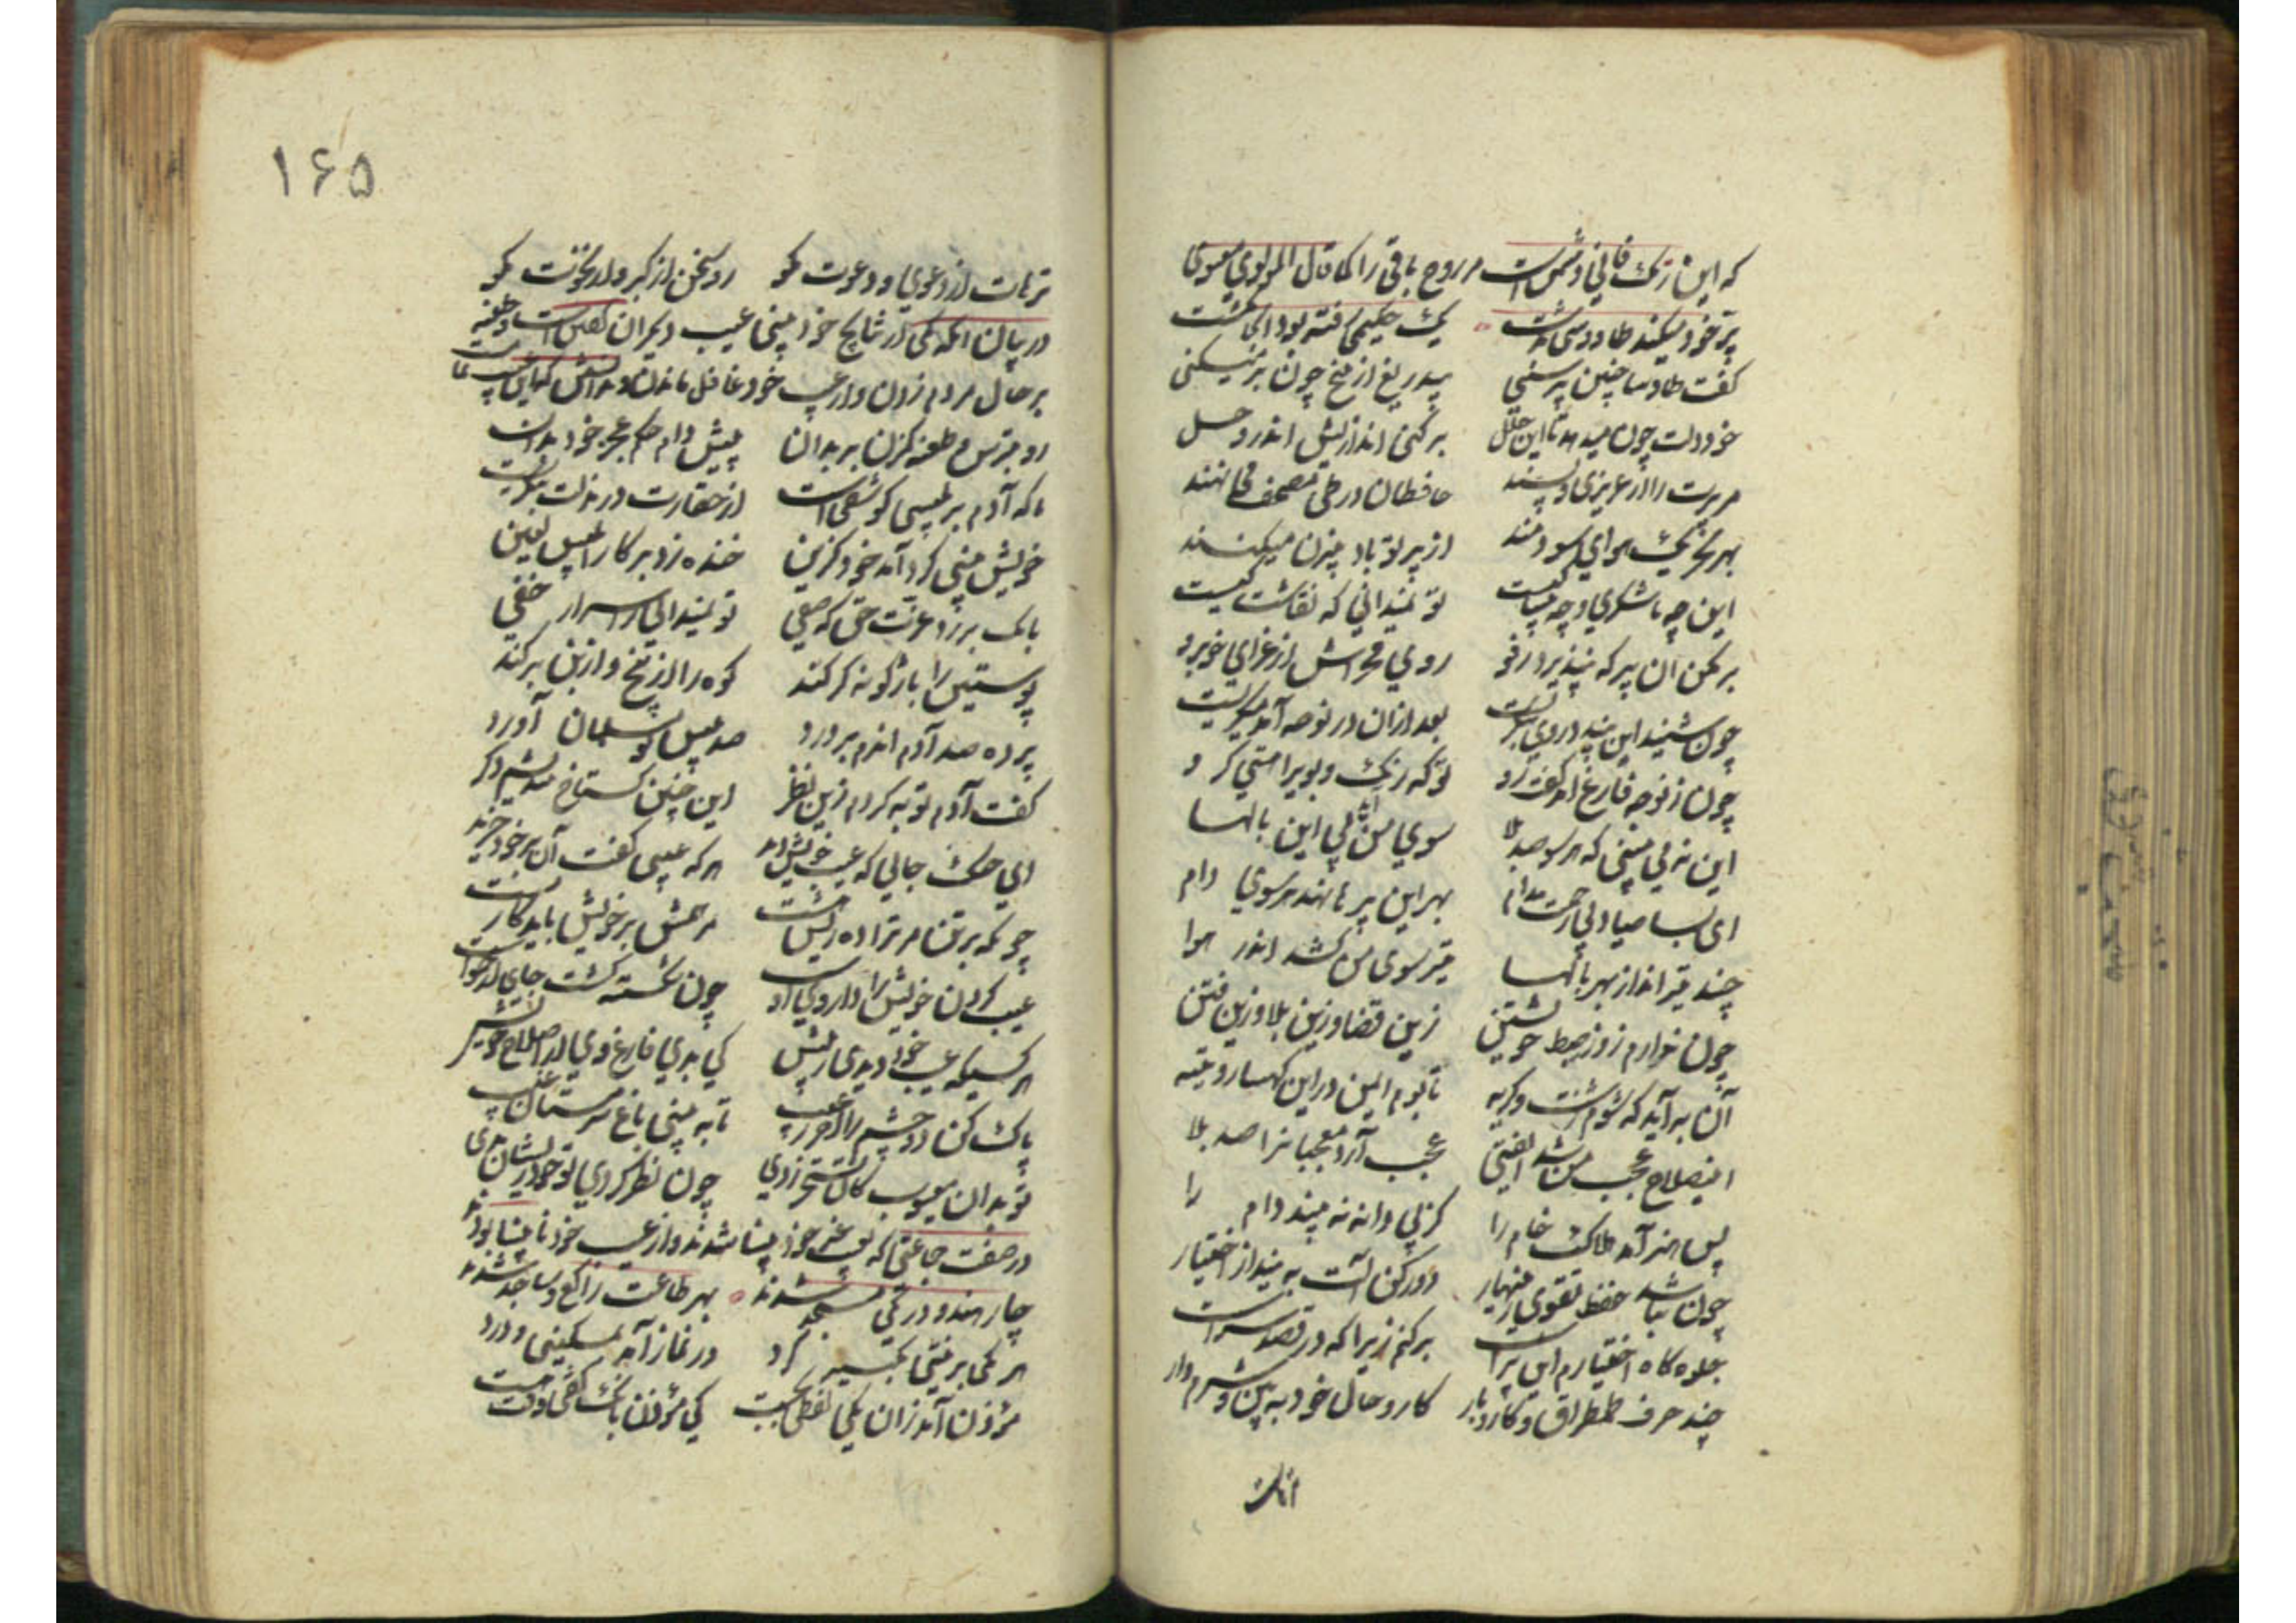 که این رنگ فانی دشمنست مر روح باقی را کما قال المولوی المعنوی
پر خود میکند طاووسی بدشت یک حکیمی رفته بود آنجا بگشت
گفت طاوسا چنین پر سنی بیدریغ از بیخ چون بر میکنی
خود دلت چون میدهد تا این حلل بر کنی اندازیش اندر وحل
هر پرت را از عزیزی و پسند حافظان در طی مصحف می نهند
بهر تحریک هوای سودمند از پر تو باد بیزن میکنند
این چه ناشکری و چه بیباکیست تو نمیدانی که نقاشش کیست
بر مکن آن پر که نپذیرد رفو روی مخراش از عزای خوبرو
چون شنید این پند در وی بنگریست بعد ازان در نوحه آمد میگریست
چون ز نوحه فارغ آمد گفت رو تو که رنگ و بوی را هستی گرو
این نمی بینی که هر سو صد بلا سوی من آید پی این بالها
ای بسا صیاد بی رحمت مدام بهر این پرها نهد هر سوی دام
چند تیر انداز بهر بالها تیر سوی من کشد اندر هوا
چون ندارم زور ضبط خویشتن زین قضا و زین بلا و زین فتن
آن به آید که شوم زشت و کریه تا بوم ایمن در این کهسار و تیه
این سلاح عجب من شد ای فتی عجب آرد معجبانرا صد بلا
پس هنر آمد هلاکت خام را کز پی دانه نه بیند دام را
چون نباشد حفظ تقوی زینهار دور کن آلت بینداز اختیار
جلوه گاه اختیارم این پرست بر کنم زیرا که در قصد سرست
چند حرف طمطراق و کار و بار کار و حال خود به بین و شرم دار
۱۶۵
ترهات از دعوی و دعوت مگو رو سخن از کبر و از نخوت مگو
در بیان آنکه کی در نتایج خود بینی عیب دیگران گفتن است و طعنه
بر حال مردم زدن و از عیب خود غافل ماندن
رو بترس و طعنه کم زن بر بدان پیش دام حکم عجز خود بدان
خویش بینی کرد و آمد خود گزین خنده زد بر کار ابلیس لعین
بانگ بر زد غیرت حق که صفی تو نمیدانی ز اسرار خفی
پوستین را باژگونه گر کند کوه را از بیخ و از بن بر کند
پرده صد آدم اندم بر درد صد بلیس نو مسلمان آورد
گفت آدم توبه کردم زین نظر این چنین گستاخ نندیشم دگر
ای خنک جانی که عیب خویش دید هر که عیبی گفت آن بر خود خرید
چونکه بر تن مر ترا ده ریش هست مرهمش بر خویش باید کار بست
عیب کردن خویش را داروی او چون شکسته گشت جای ارحمواست
هر کسی که عیب خود دیدی ز پیش کی بدی فارغ وی از اصلاح خویش
پاک کن دو چشم را از موی عیب تا به بینی باغ سروستان غیب
در صفت جماعتی که بعیب غیر خود بینا شدند و از عیب خود نابینا بودند
چار هندو در یکی مسجد شدند بهر طاعت راکع و ساجد شدند
هر یکی بر نیتی تکبیر کرد در نماز آمد بمسکینی و درد
مؤذن آمد زان یکی لفظی بجست کی مؤذن بانگ گفتی وقت هست